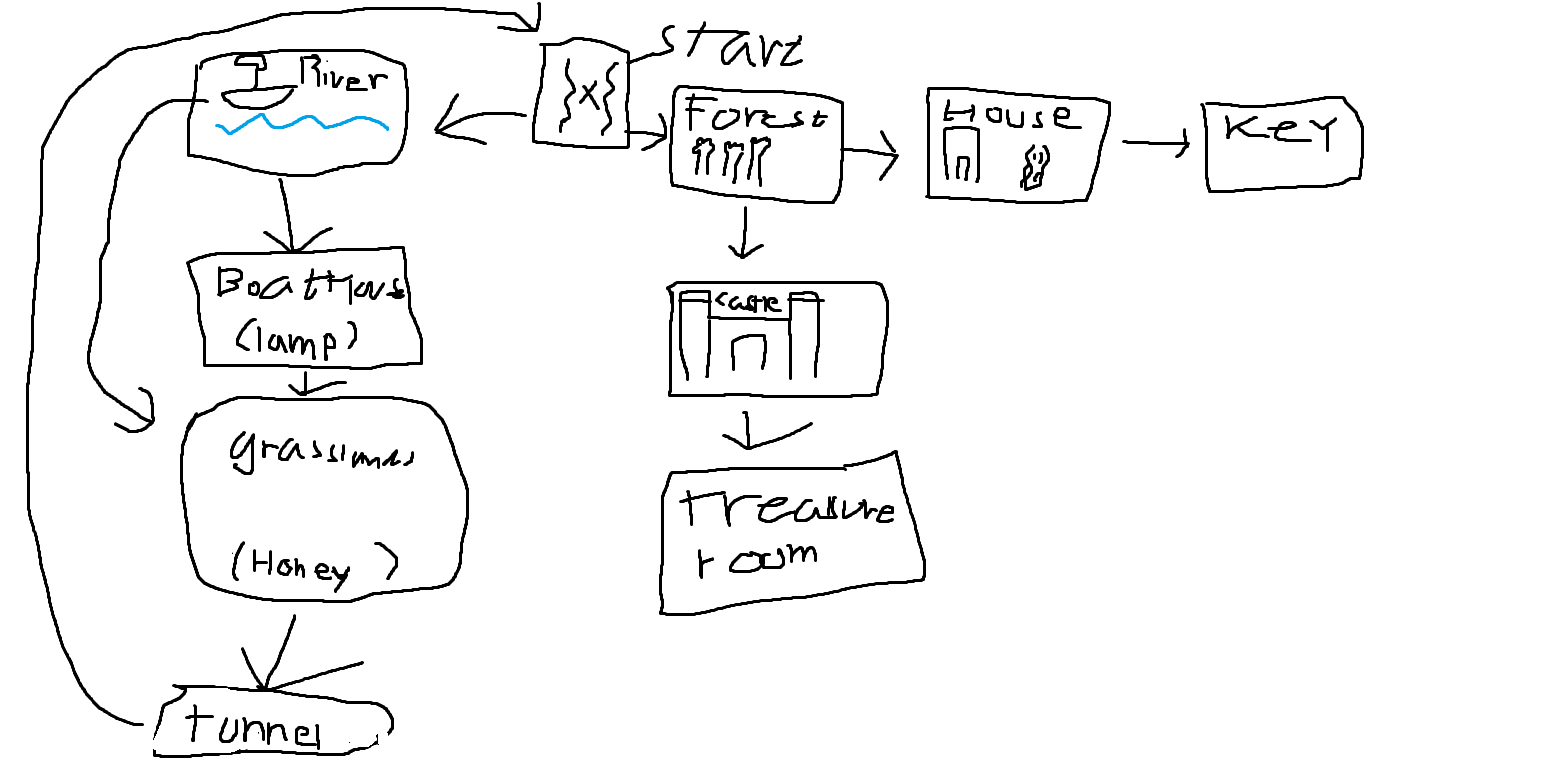 Start
X
River
Forest
House
Key
BoatHous
(lamp)
castle
grassland
(Honey)
treasure
room
tunnel